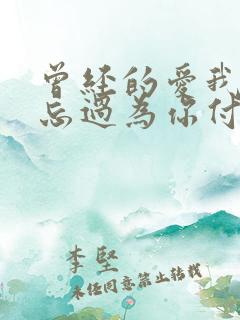 曾经的爱我
忘过为你付
李堅
未经同意禁止转载